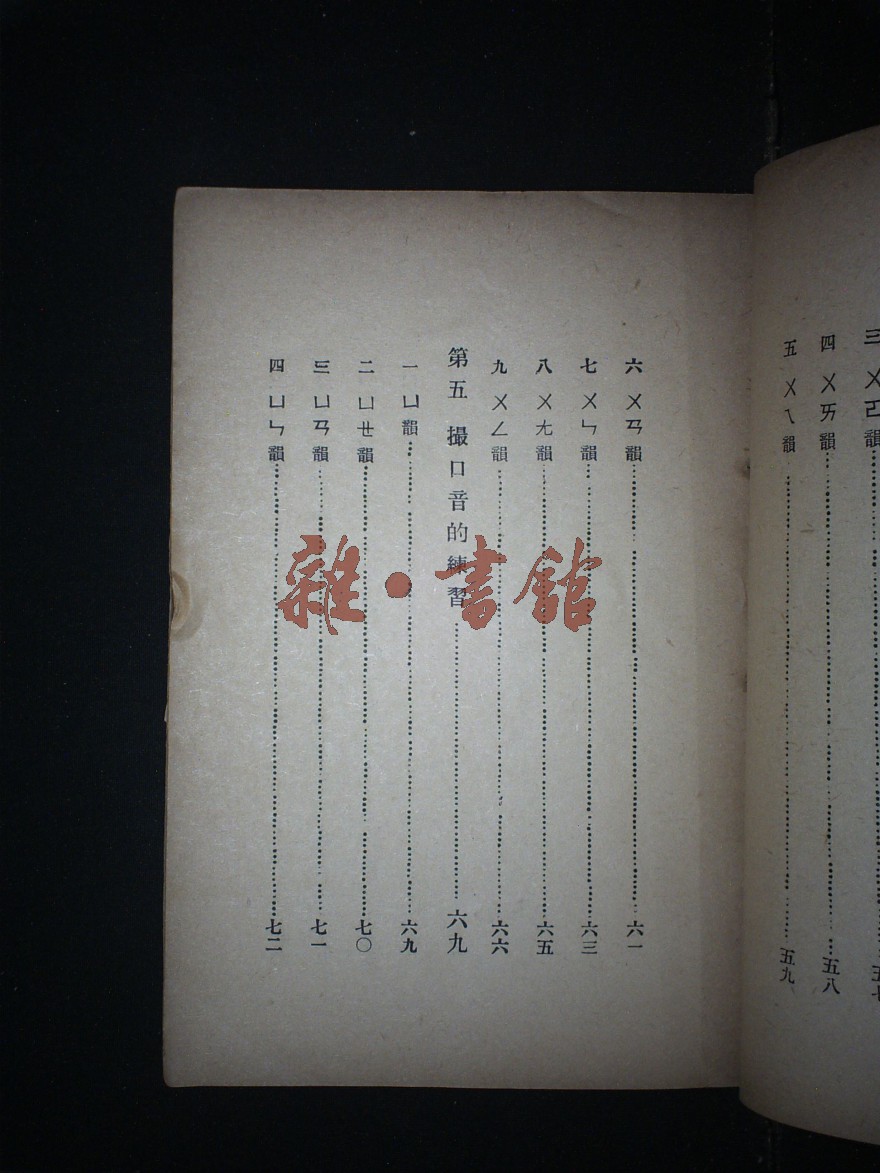 三 ㄨㄛ韻
四 ㄨㄞ韻……五八
五 ㄨㄟ韻……五九
六 ㄨㄢ韻……六一
七 ㄨㄣ韻……六三
八 ㄨㄤ韻……六五
九 ㄨㄥ韻……六六
第五 撮口音的練習……六九
一 ㄩ韻……六九
二 ㄩㄝ韻……七〇
三 ㄩㄢ韻……七一
四 ㄩㄣ韻……七二
雜·書館